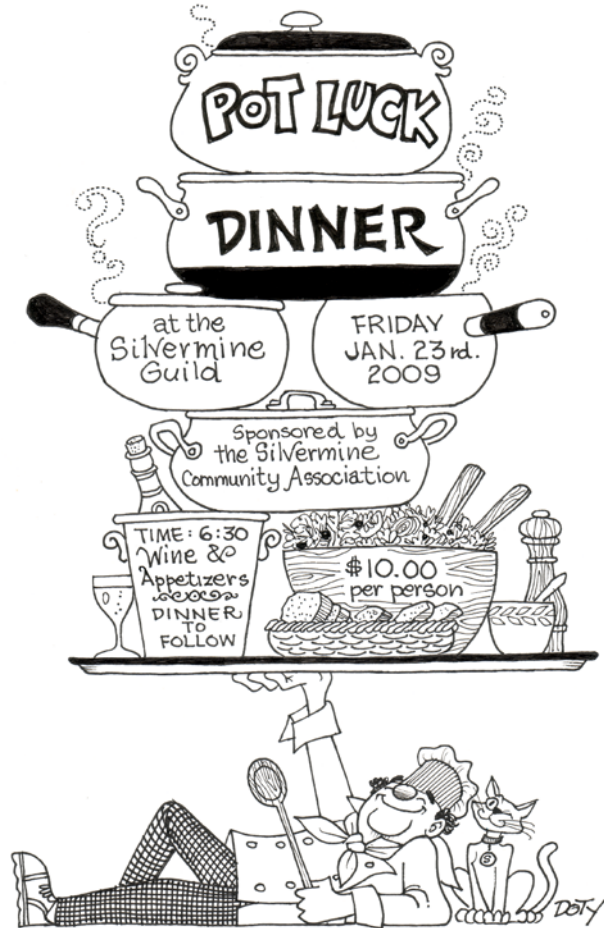 POT LUCK
DINNER
at the
Silvermine
Guild
FRIDAY
JAN. 23rd.
2009
Sponsored by
the Silvermine
Community Association
TIME: 6:30
Wine &
Appetizers
DINNER
TO
FOLLOW
$10.00
per person
S
DOTY